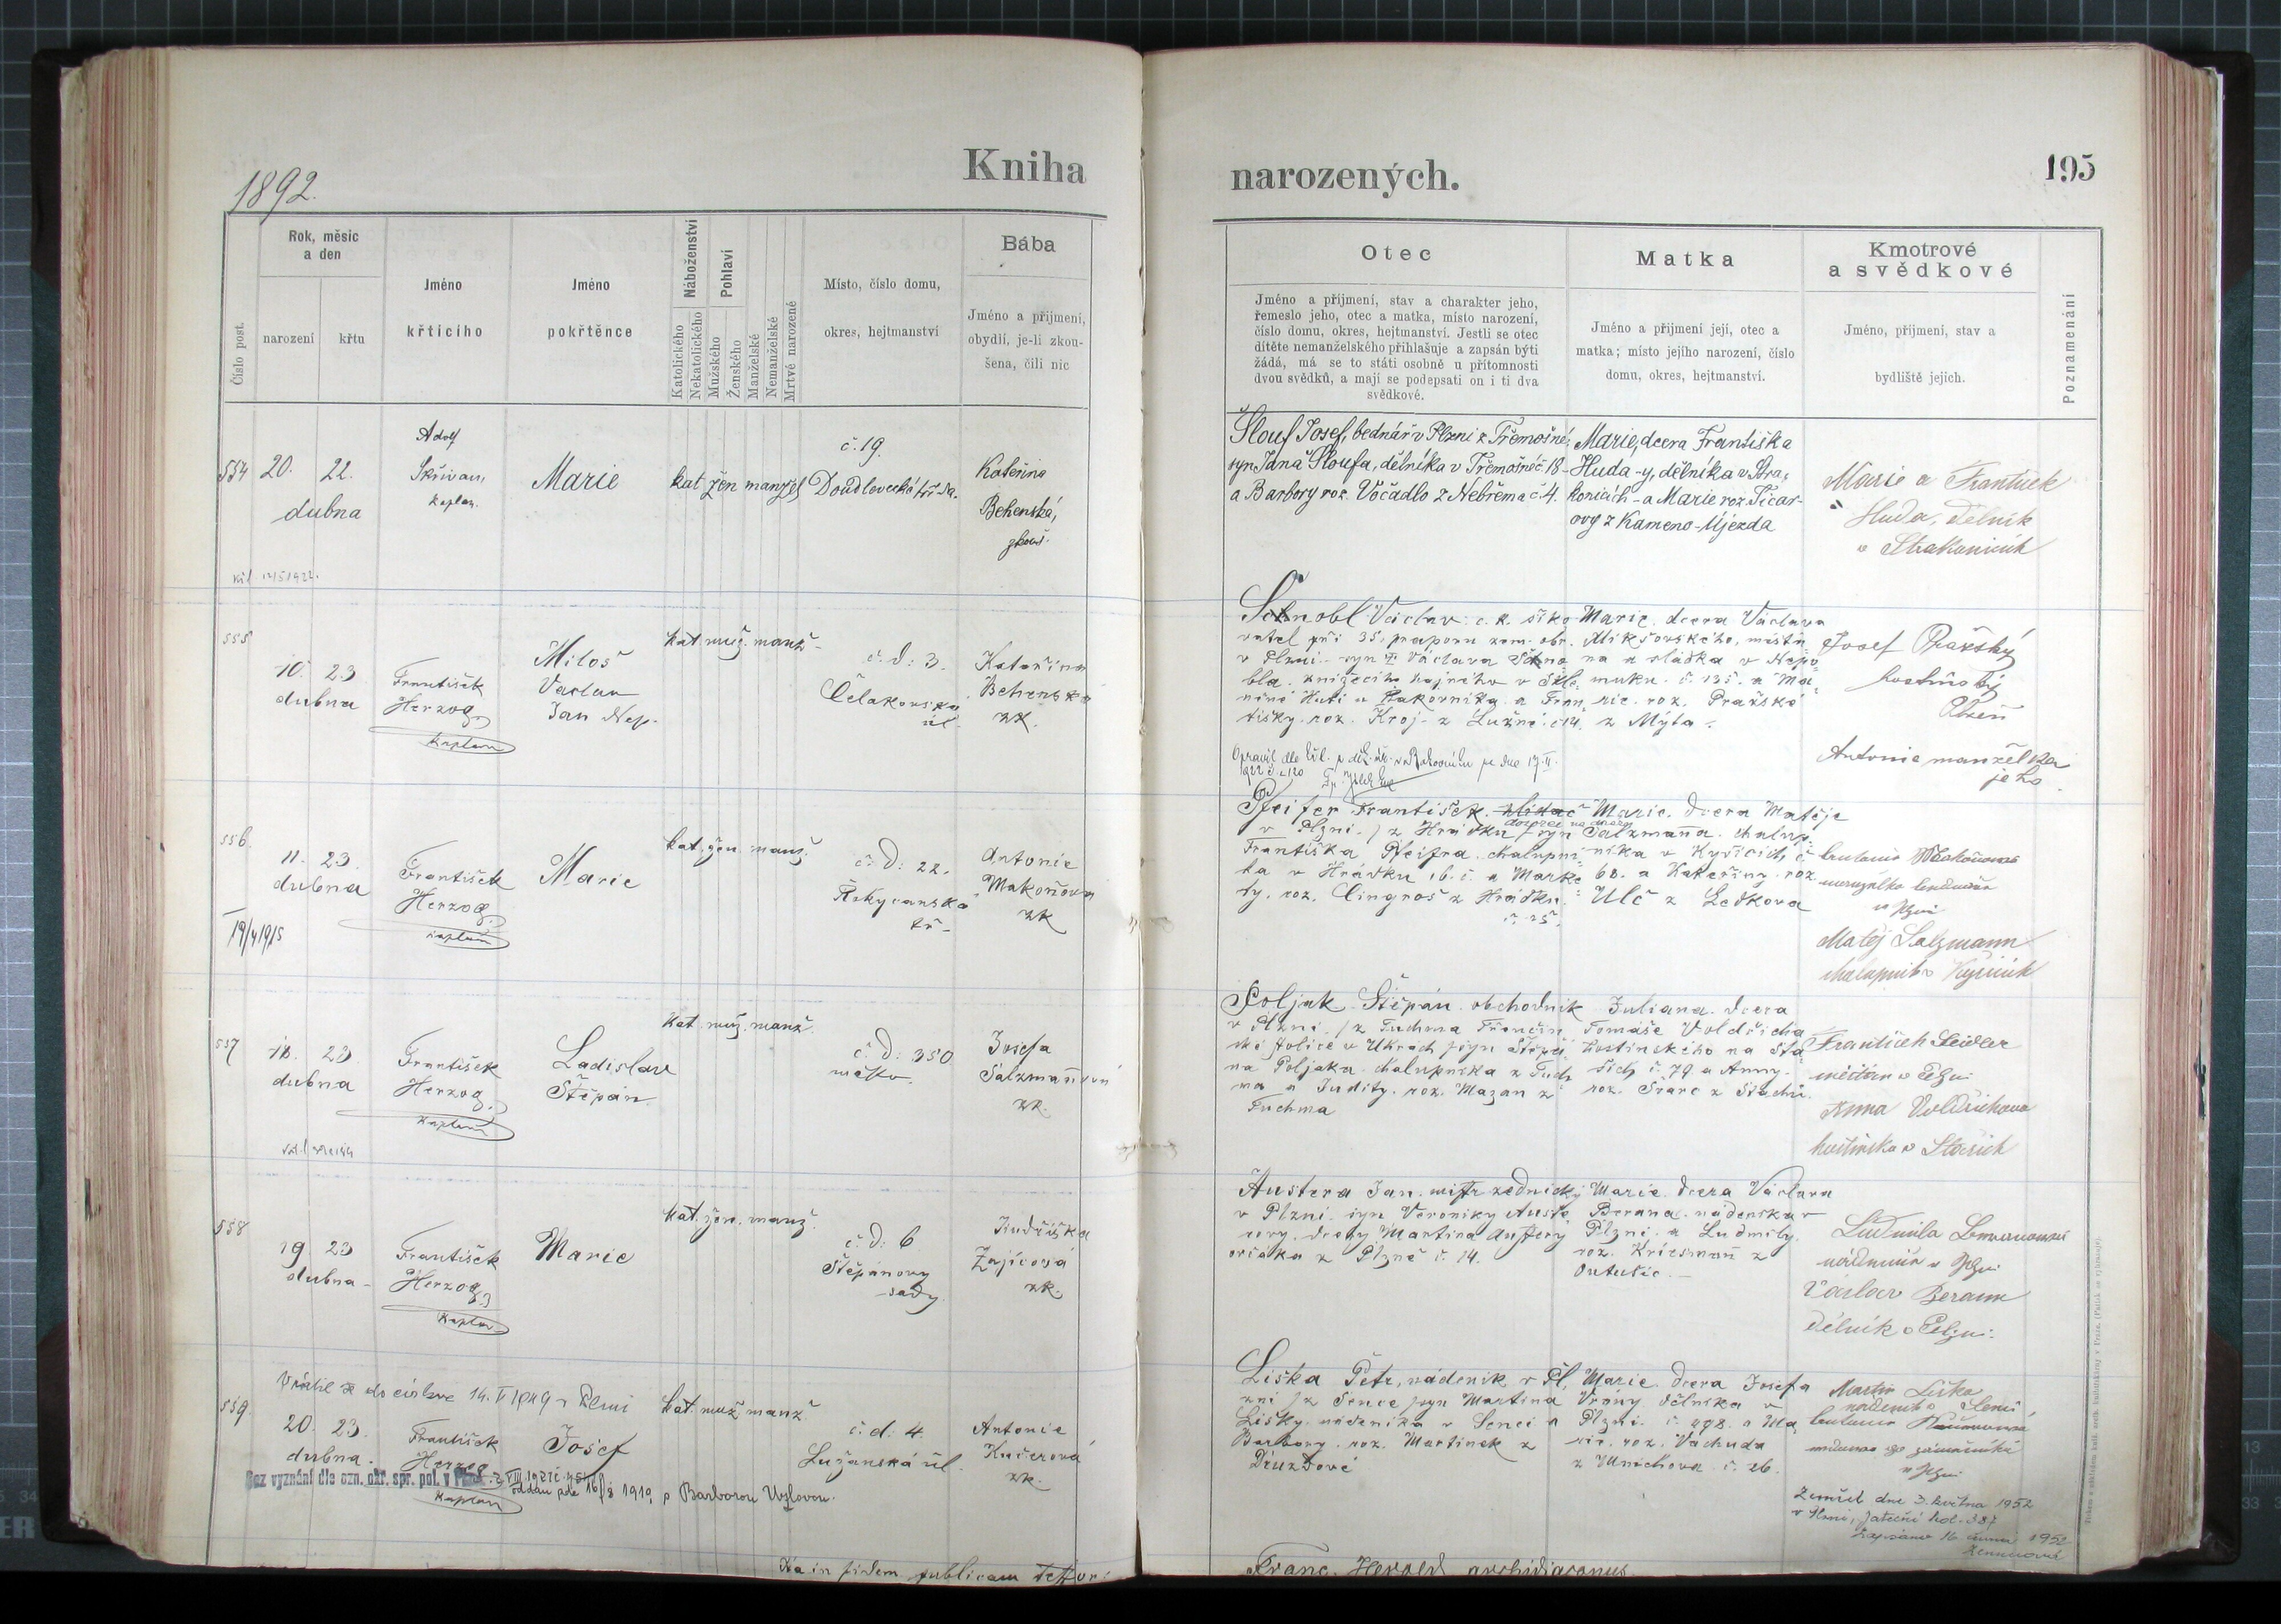 1892.
Kniha
narozených.
195
Číslo post.
Rok, měsíc
a den
narození
křtu
Jméno
křtícího
Jméno
pokřtěnce
Náboženství
Katolického
Nekatolického
Pohlaví
Mužského
Ženského
Manželské
Nemanželské
Mrtvě narozené
Místo, číslo domu,
okres, hejtmanství
Bába
Jméno a příjmení,
obydlí, je-li zkou-
šena, čili nic
Otec
Jméno a příjmení, stav a charakter jeho,
řemeslo jeho, otec a matka, místo narození,
číslo domu, okres, hejtmanství. Jestli se otec
dítěte nemanželského přihlašuje a zapsán býti
žádá, má se to státi osobně u přítomnosti
dvou svědků, a mají se podepsati on i ti dva
svědkové.
Matka
Jméno a příjmení její, otec a
matka; místo jejího narození, číslo
domu, okres, hejtmanství.
Kmotrové
a svědkové
Jméno, příjmení, stav a
bydliště jejich.
Poznamenání
554
20. 22.
dubna
Adolf
Skřivan,
kaplan.
Marie
kat žen manžel
č. 19.
Doudlevecká tří-da.
Kateřina
Behenská,
zkouš.
Šlouf Josef, bednář v Plzni z Třemošné,
syn Jana Šloufa, dělníka v Třemošné č. 18
a Barbory roz. Vočadlo z Nebřema č. 4.
Marie, dcera Františka
Huda-y, dělníka v Stra-
konicích - a Marie roz. Ticar-
ovy z Kameno-Újezda
Marie a František
Huda, dělník
v Strakonicích
555
10. 23
dubna
František
Herzog
kaplan
Miloš
Václav
Jan Nep.
kat. muž. manž.
č. d: 3.
Čelakovského
úl.
Kateřina
Behenská
zk.
Schnobl Václav: c. k. šiko-
vatel při 35. praporu zem. obr.
v Plzni syn Václava Schno-
bla. knížecího hajného v
Huti u Rakovníka a Fran-
tišky. roz. Kroj z Lužné. č 14.
Marie. dcera Václava
Mikšovského, měšťa-
na a sládka v Nepo-
muku. č. 135. a Ma-
rie. roz. Pražské
z Mýta.
1922 č. 120
Josef Pražský
hostinský
Plzeň
Antonie manželka
jeho
556.
11. 23
dubna
František
Herzog
kaplan
Marie
kat. žen. manž.
č. d: 22.
Rokycanská
tř-
Antonie
Makoňova
zk
19/4 1915
Pfeifer František.
v Plzni. z Hrádku syn
Františka Pfeifra. chalupní-
ka v Hrádku 16. č. a Marke-
ty. roz. Clingroš z Hrádku.
č. 25.
Marie. dcera Matěje
Salzmana. chalup-
níka v Kyšicích, č
68. a Kateřiny. roz.
Ulč z Letkova
Matěj Salzmann
chalupník v Kyšicích
557
18. 23
dubna
František
Herzog
kaplan
Ladislav
Štěpán
kat. muž. manž.
č. d: 350
město.
Josefa
Salzmanová
zk.
Poljak Štěpán. obchodník
v Plzni. z Tuchma Trenčan-
ské stolice v Uhrách syn Ště-
na Poljaka. chalupníka z Tuch-
ma a Judity. roz. Mazan z
Tuchma
Juliana. dcera
Tomáše Voldřicha
hostinského na Sta-
č. 79 a Anny.
roz. Švarc z
František Seidler
měšťan v Plzni
Anna Voldřichova
hostinska v
558
19. 23
dubna
František
Herzog
kaplan
Marie
kat. žen. manž.
č. d: 6
Štěpánovy
sady.
Jindřiška
Zajícová
zk.
Austera Jan. mistr zednický
v Plzni. syn Veroniky Auste-
rovy. dcery Martina Austery
z Plzně č. 14.
Marie. dcera Václava
Berana. nádeníka v
Plzni. a Ludmily.
roz. Kriesman z
Ludmila Beranova
v Plzni
Václav Beran
dělník v Plzni.
559
20. 23.
dubna.
František
Herzog
kaplan
Josef
kat. muž manž.
č. d: 4.
Lužanská úl.
Antonie
Kučerová
zk.
Vrátil se do církve 14. V 1949 v Plzni
Bez vyznání dle ozn. okr. spr. pol. v
oddán dne 16/8 1919 s Barborou
Liška Petr, nádeník v Pl-
zni z Senec syn Martina
Lišky. nádeníka v Senci a
Barbory. roz. Martinek z
Druzdové
Marie dcera Josefa
Vrány dělníka v
Plzni. č. 498. a Ma-
rie. roz. Vachuda
z Unichova č. 26.
Martin Liška
Zemřel dne 3. května 1952
v Plzni,
zapsáno 16. června 1952
Da in fidem publicam
Franc. Herold archidiaconus